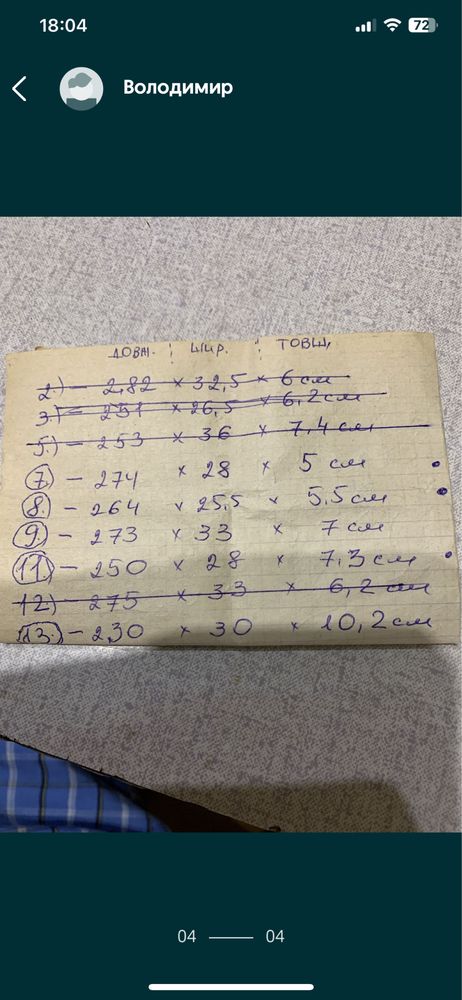 18:04
72
Володимир
ДОВЖ. ; ШИР. ; ТОВЩ.
2.) - 2,82 × 32,5 × 6 см
3.) - 251 × 26,5 × 6,2 см
5.) - 253 × 36 × 7,4 см
7. - 274 × 28 × 5 см
8. - 264 × 25,5 × 5,5 см
9. - 273 × 33 × 7 см
11) - 250 × 28 × 7,3 см
12) - 275 × 33 × 6,2 см
13.) - 230 × 30 × 10,2 см
04 — 04